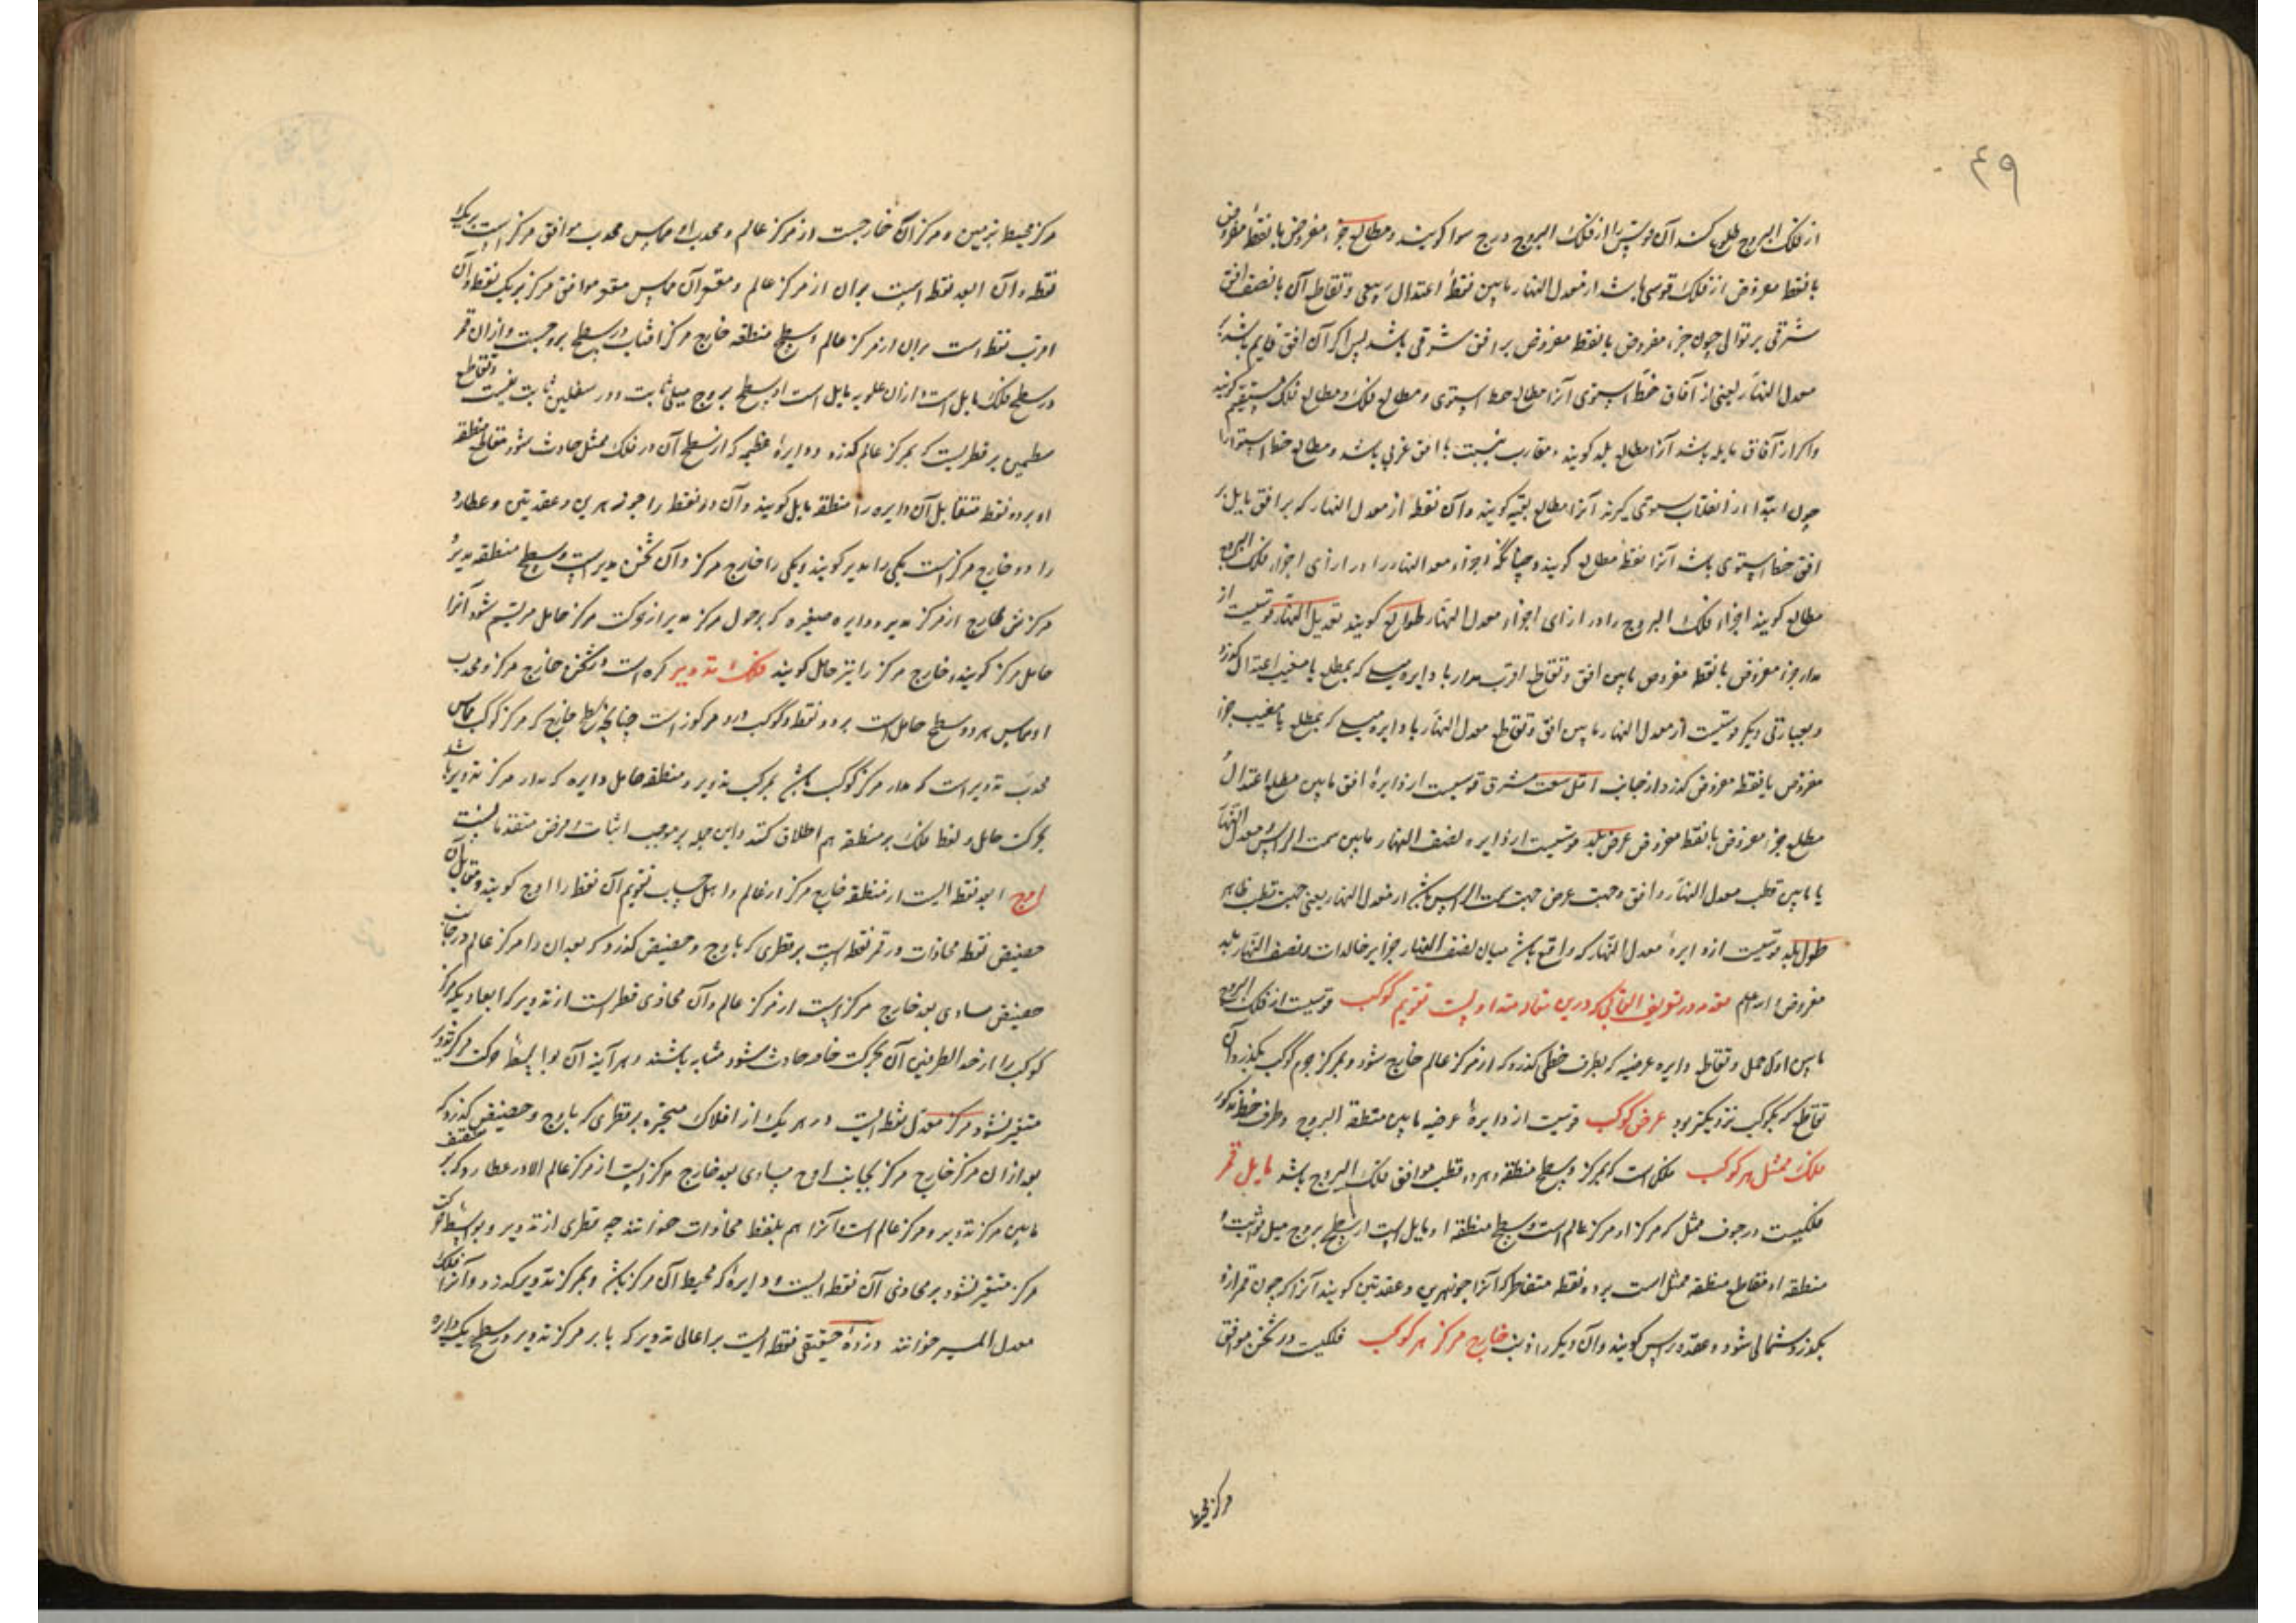 ٤٩
از فلک البروج طلوع کند آن قوس را از فلک البروج درج سوا کویند و مطالع جزء مفروض یا نقطهٔ مفروض
یا نقطه مفروض از فلک قوسی باشد از معدل النهار مابین نقطهٔ اعتدال ربیعی و تقاطع آن با نصف افق
شرقی بر توالی چون جزء مفروض یا نقطه مفروض بر افق شرقی باشد پس اکر آن افق قایم باشد بر
معدل النهار یعنی از آفاق خط استوی آنرا مطالع خط استوی و مطالع فلک و مطالع فلک مستقیم کویند
و اکر از آفاق مایله باشد آنرا مطالع بلد کویند و مقارب بنسبت با افق غربی باشد و مطالع خط استوا را
چون ابتدا از انقلاب ستوی کیرند آنرا مطالع بقیه کویند و آن نقطه از معدل النهار که بر افق مایل بر
افق خط استوی باشد آنرا نقطهٔ مطالع کویند و چنانکه اجزاء معدل النهار را در ازای اجزاء فلک البروج
مطالع کویند اجزاء فلک البروج را در ازای اجزاء معدل النهار طوالع کویند تعدیل النهار قوسیست از
مدار جزء مفروض یا نقطه مفروض مابین افق و تقاطع اقرب مدار با دایره میلی که بمطلع یا مغیب اعتدال کذرد
و بعبارتی دیکر قوسیست از معدل النهار مابین افق و تقاطع معدل النهار با دایره میلی که بمطلع یا مغیب جزء
مفروض یا نقطه مفروض کذرد از جانب اقل سعت مشرق قوسیست از دایرهٔ افق مابین مطلع اعتدال و
مطلع جزء مفروض یا نقطه مفروض عرض بلد قوسیست از دایره نصف النهار مابین سمت الراس و معدل النهار
یا مابین قطب معدل النهار و افق و جهت عرض جهت سمت الراس باشد از معدل النهار یعنی جهت قطب ظاهر
طول بلد قوسیست از دایرهٔ معدل النهار که واقع باشد میان نصف النهار جزایر خالدات و نصف النهار بلد
مفروض و الله اعلم مقدمه در تعریف القابی که درین مقاله متداولست تقویم کوکب قوسیست از فلک البروج
مابین اول حمل و تقاطع دایره عرضیه که بطرف خطی کذرد که از مرکز عالم خارج شود و بمرکز جرم کوکب بکذرد و آن
تقاطع که بکوکب نزدیکتر بود عرض کوکب قوسیست از دایرهٔ عرضیه مابین منطقة البروج و طرف خط مذکور
فلک ممثل هر کوکب فلکی است که بمرکز و سطح منطقه و هر دو قطب موافق فلک البروج باشد مایل قمر
فلکیست در جوف ممثل که مرکز او مرکز عالم است و سطح منطقه او مایل است از سطح بروج میل ثابت و
منطقه او مقاطع منطقه ممثل است بر دو نقطه متقاطر که آنرا جوزهرین و عقدتین کویند آنرا که چون قمر ازو
بکذرد شمالی شود عقده راس کویند و آن دیکر را ذنب خارج مرکز هر کوکب فلکیست در ثخن موافق
مرکز محیط
مرکز محیط بزمین و مرکز آن خارجست از مرکز عالم و محدب او مماس محدب موافق مرکز است بر یک
نقطه و آن ابعد نقطه است بر آن از مرکز عالم و مقعر آن مماس مقعر موافق مرکز بر یک نقطه و آن
اقرب نقطه است بر آن از مرکز عالم و سطح منطقه خارج مرکز افتاب در سطح بروجست و از آن قمر
در سطح فلک مایل است و از آن علویه مایل است از سطح بروج میلی ثابت و در سفلیین ثابت نیست و تقاطع
سطحین بر قطریست که بمرکز عالم کذرد و دایرهٔ عظیمه که از سطح آن در فلک ممثل حادث شود مقاطع منطقه
او بر دو نقطه متقابل آن دایره را منطقه مایل کویند و آن دو نقطه را جوزهرین و عقدتین و عطارد
را دو خارج مرکز است یکی را مدیر کویند و یکی را خارج مرکز و آن در ثخن مدیر است و سطح منطقه مدیر و
مرکزش خارج از مرکز مدیر و دایره صغیره که بر حول مرکز مدیر از حرکت مرکز حامل مرتسم شود آنرا
حامل مرکز کویند و خارج مرکز را نیز حامل کویند فلک تدویر کره است در ثخن خارج مرکز و محدب
او مماس هر دو سطح حامل است بر دو نقطه و کوکب درو مرکوز است چنانچه سطح خارج که مرکز کوکب مماس
محدب تدویر است که مدار مرکز کوکب باشد بحرکت تدویر و منطقه حامل دایره که مدار مرکز تدویر باشد
بحرکت حامل و لفظ فلک بر منطقه هم اطلاق کنند و این جمله بر موجب اثبات و فرض متقدمانست
اوج ابعد نقطه ایست از منطقه خارج مرکز از عالم و اهل حساب تقویم آن نقطه را اوج کویند و مقابل آن
حضیض نقطه محاذات در قمر نقطه ایست بر قطری که باوج و حضیض کذرد که بعد آن از مرکز عالم در جانب
حضیض مساوی بعد خارج مرکز است از مرکز عالم و آن محاذی قطر است از تدویر که ابعاد یک مرکز
کوکب را از احد الطرفین آن بحرکت خاصه حادث شود متشابه باشند و هر آینه آن بواسطهٔ حرکت مرکز تدویر
متغیر نشود مرکز معدل نقطه ایست در هر یک از افلاک متحیره بر قطری که باوج و حضیض کذرد که
بعد از آن مرکز خارج مرکز بجانب اوج مساوی بعد خارج مرکز است از مرکز عالم الا در عطارد که بر منتصف
مابین مرکز تدویر و مرکز عالم است و آنرا هم بلفظ محاذات خوانند چه قطری از تدویر و بواسطه حرکت
مرکز متغیر نشود بر محاذی آن نقطه است و دایرهٔ که محیط آن مرکز باشد و بمرکز تدویر کذرد و آنرا فلک
معدل المسیر خوانند و ذروهٔ حقیقی نقطه ایست بر اعالی تدویر که با بر مرکز تدویر در سطح یک دایره